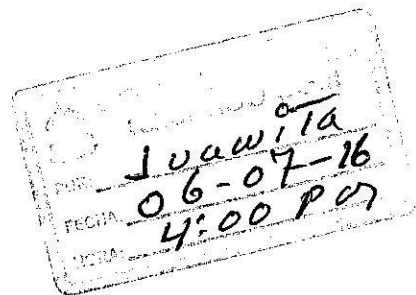 POR: Juanita
FECHA: 06-07-16
HORA: 4:00 pm